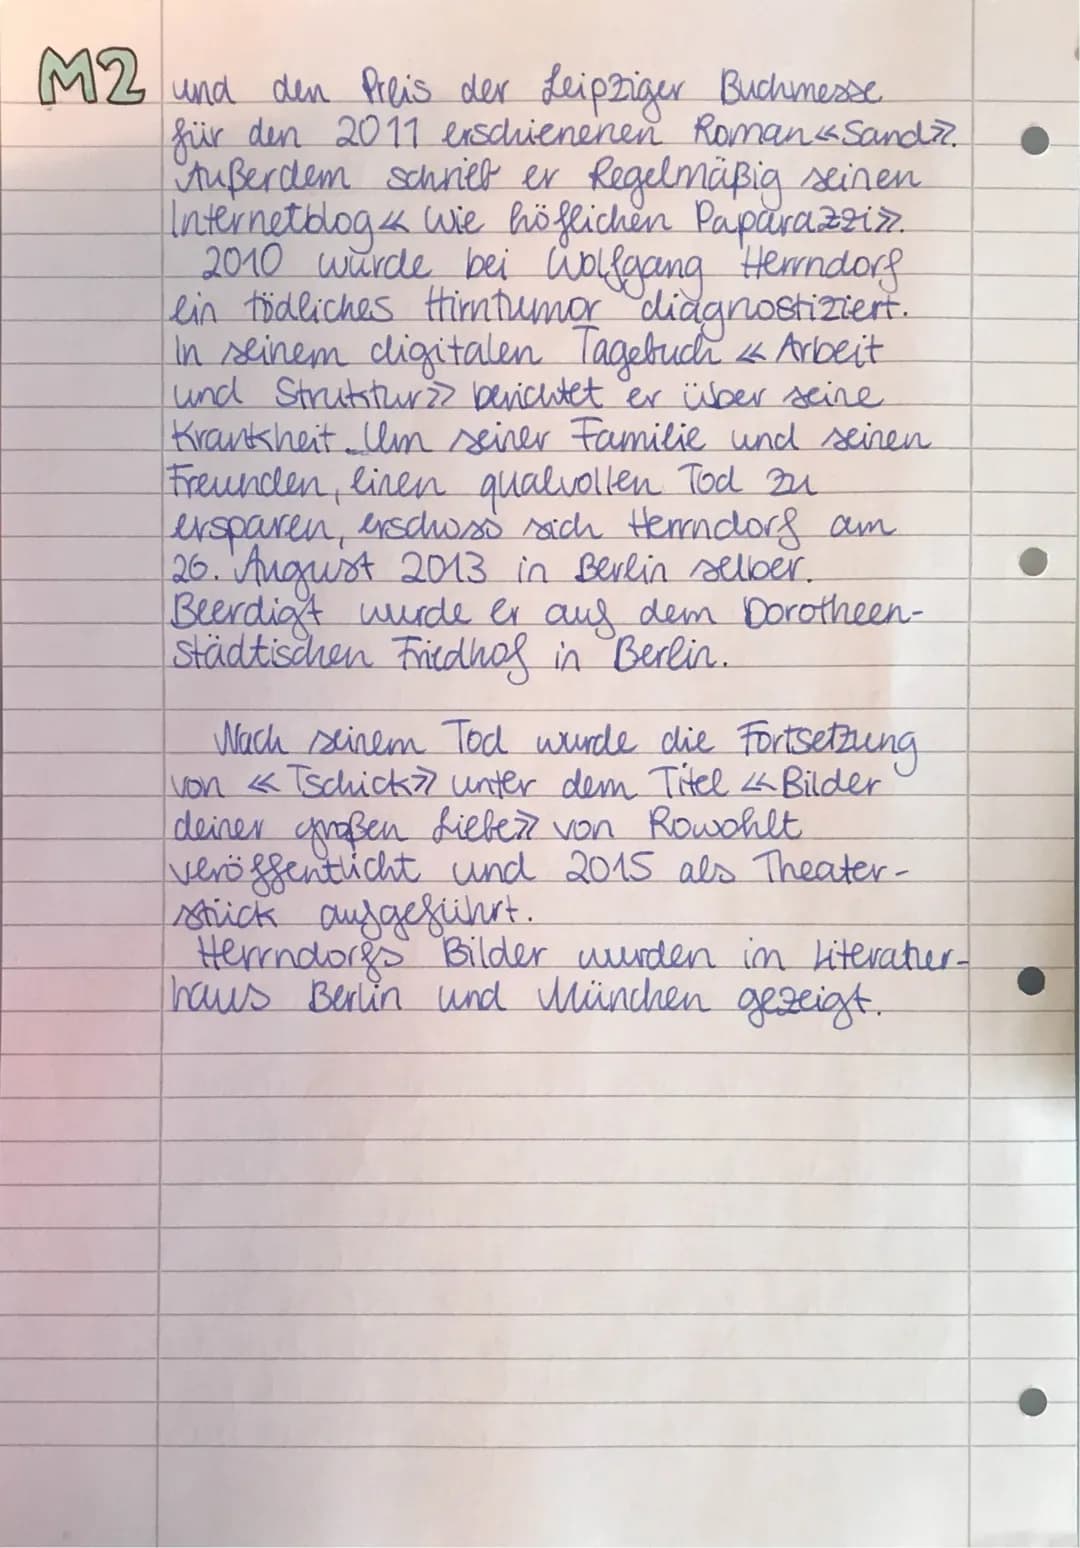 M2
und den Preis der Leipziger Buchmesse
für den 2011 erschienenen Roman «Sand».
Außerdem schrieb er Regelmäßig seinen
Internetblog « Wie höflichen Paparazzi».
2010 wurde bei Wolfgang Herrndorf
ein tödliches Hirntumor diagnostiziert.
In seinem digitalen Tagebuch « Arbeit
und Struktur» berichtet er über seine
Krankheit. Um seiner Familie und seinen
Freunden, einen qualvollen Tod zu
ersparen, erschoss sich Herrndorf am
26. August 2013 in Berlin selber.
Beerdigt wurde er auf dem Dorotheen-
städtischen Friedhof in Berlin.
Nach seinem Tod wurde die Fortsetzung
von «Tschick» unter dem Titel «Bilder
deiner großen Liebe» von Rowohlt
veröffentlicht und 2015 als Theater-
stück aufgeführt.
Herrndorfs Bilder wurden im Literatur-
haus Berlin und München gezeigt.